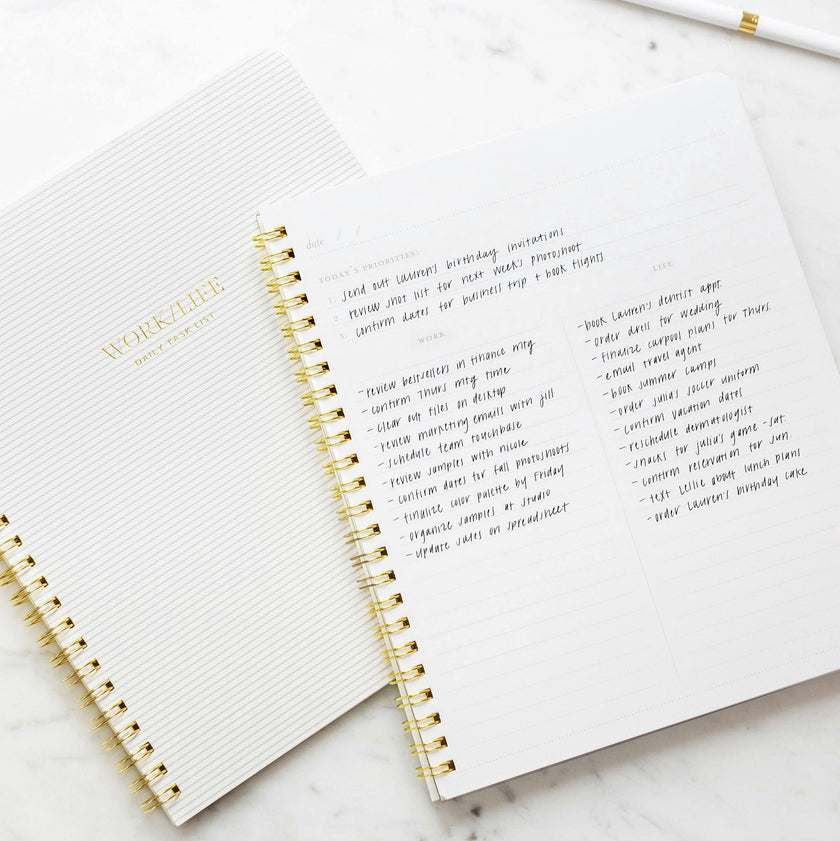 WORK/LIFE
DAILY TASK LIST
date / /
TODAY'S PRIORITIES:
1. send out Lauren's birthday invitations
2. review shot list for next week's photoshoot
3. confirm dates for business trip + book flights
WORK
- review bestsellers in finance mtg
- confirm Thurs mtg time
- clear out files on desktop
- review marketing emails with jill
- schedule team touchbase
- review samples with nicole
- confirm dates for fall photoshoots
- finalize color palette by Friday
- organize samples at studio
- update sales on spreadsheet
LIFE
- book Lauren's dentist appt.
- order dress for wedding
- finalize carpool plans for Thurs.
- email travel agent
- book summer camps
- order Julia's soccer uniform
- confirm vacation dates
- reschedule dermatologist
- snacks for Julia's game - sat.
- confirm reservation for sun.
- text Kellie about lunch plans
- order Lauren's birthday cake